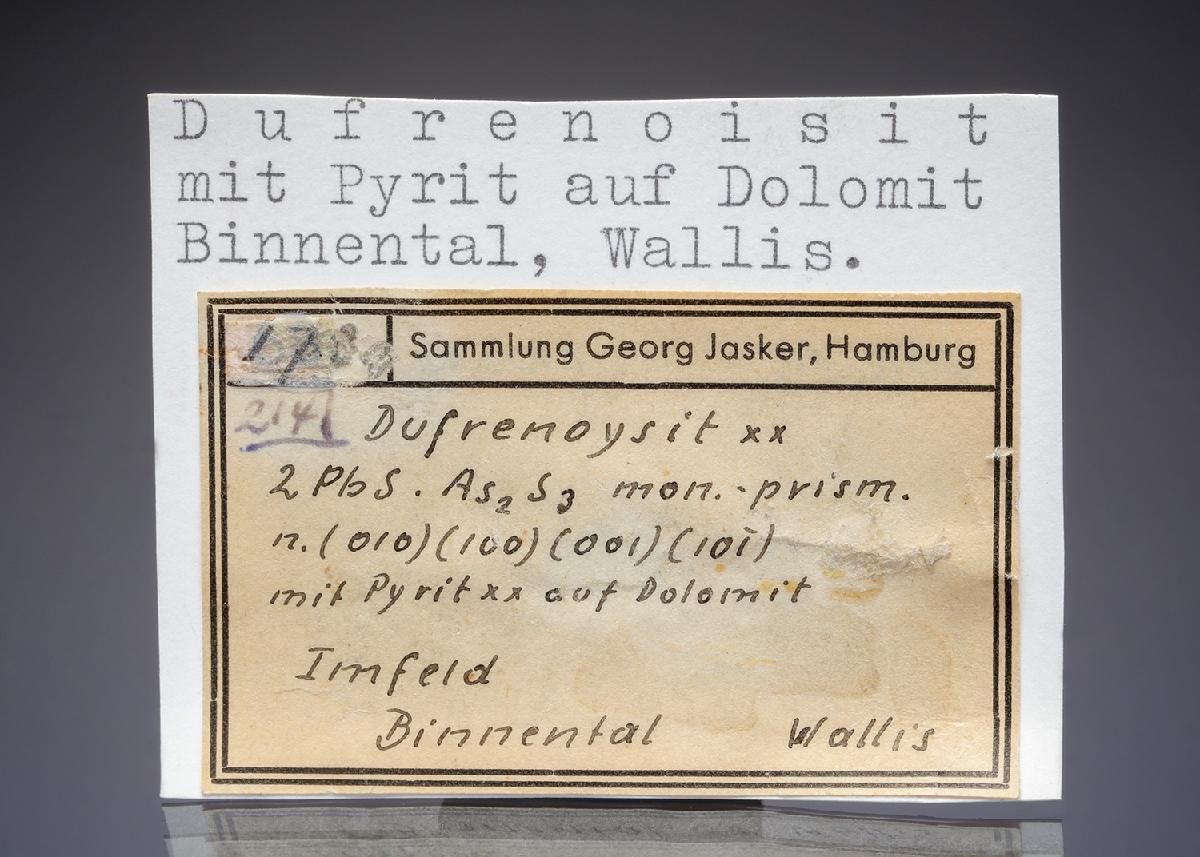 Dufrenoisit
mit Pyrit auf Dolomit
Binnental, Wallis.
Sammlung Georg Jasker, Hamburg
214
Dufrenoysit xx
2 PbS . As₂S₃ mon.-prism.
n. (010) (100) (001) (101̄)
mit Pyrit xx auf Dolomit
Imfeld
Binnental Wallis